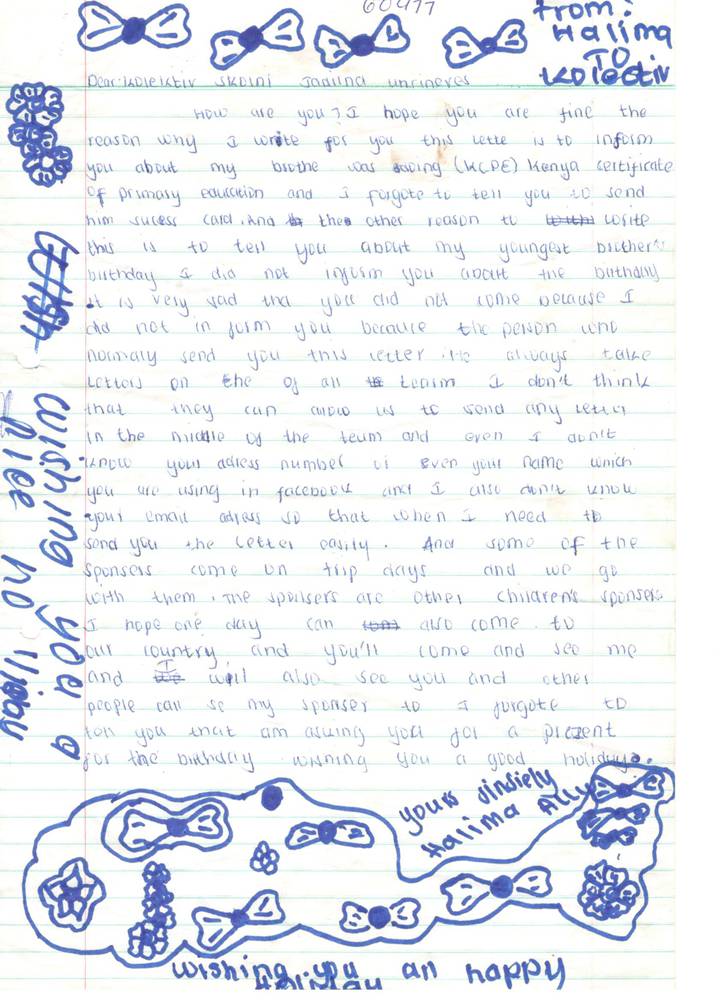 60477
From:
Halima
TO
kolectiv
Dear: kolektiv skolni Jadilna
How are you? I hope you are fine the
reason why I write for you this lette is to inform
you about my brothe was doing (KCPE) Kenya certificate
of primary education and I forgote to tell you to send
him sucess card. And the other reason to write
this is to tell you about my youngest brothers
birthday I did not inform you about the birthday
it is very sad that you did not come because I
did not in form you because the person who
normaly send you this letter. He always take
letters on the of all I don't think
that they can allow us to send any letter
in the middle of the team and even I don't
know your adress number or even your name which
you are using in facebook and I also don't know
your email adress so that when I need to
send you the letter easily. And some of the
sponsers come on trip days and we go
with them. The sponsers are other children's sponsers
I hope one day can also come to
our country and you'll come and see me
and I will also see you and other
people can se my sponser to I forgote to
tell you that am asking you for a present
for the birthday wishing you a good holiday.
yours sindiely
Halima Ally
wishing you a
nice ho
liday
wishing you an happy
holiday